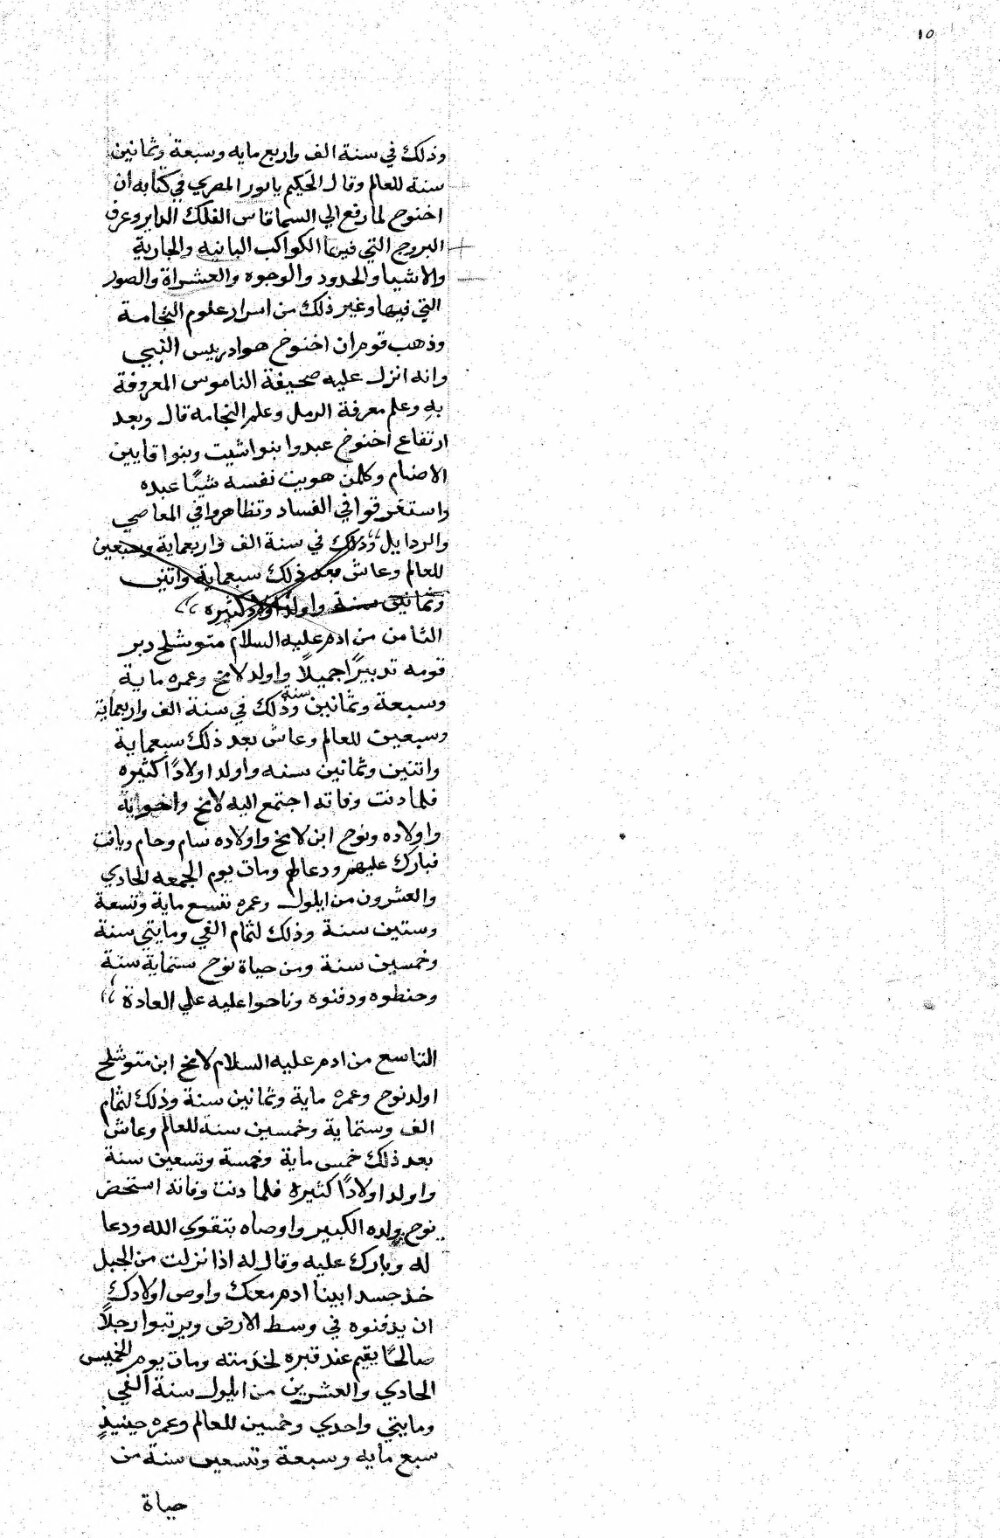 ١٥
وذلك في سنة الف واربع مايه وسبعة وثمانين
سنة للعالم وقال الحكيم يانور المصري في كتابه ان
اخنوح لما رفع الي السما قاس الفلك الداير وعرف
البروج التي فيها الكواكب البانيه والجارية
والاشيا والحدود والوجوه والعشراة والصور
التي فيها وغير ذلك من اسرار علوم النجامة
وذهب قوم ان اخنوخ هو ادريس النبي
وانه انزل عليه صحيفة الناموس المعروفة
به وعلم معرفة الرمل وعلم النجامه قال وبعد
ارتفاع اخنوخ عبدوا بنوا شيت وبنوا قايين
الاصنام وكلمن هويت نفسه شيًا عبده
واستغرقوا في الفساد وتظاهروا في المعاصي
والردايل وذلك في سنة الف واربعماية وسبعين
للعالم وعاش بعد ذلك سبعماية واتنين
وثمانين سنة واولد اولاد كثيره
الثامن من ادم عليه السلام متوشلح دبر
قومه تدبيرًا جميلًا واولد لامخ وعمره ماية
وسبعة وثمانين سنة وذلك في سنة الف واربعماية
وسبعين للعالم وعاش بعد ذلك سبعماية
واتنين وثمانين سنه واولد اولادًا كثيره
فلما دنت وفاته اجتمع اليه لامخ واخوانه
واولاده ونوح ابن لامخ واولاده سام وحام ويافت
فبارك عليهم ودعا لهم ومات يوم الجمعه الحادي
والعشرون من ايلول وعمره تسع ماية وتسعة
وستين سنة وذلك لتمام الفي ومايتي سنة
وخمسين سنة ومن حياة نوح ستماية سنة
وحنطوه ودفنوه وناحوا عليه علي العادة
التاسع من ادم عليه السلام لامخ ابن متوشلح
اولد نوح وعمره ماية وثمانين سنة وذلك لتمام
الف وستماية وخمسين سنة للعالم وعاش
بعد ذلك خمس ماية وخمسة وتسعين سنة
واولد اولادًا كثيره فلما دنت وفاته استحضر
نوح ولده الكبير واوصاه بتقوي الله ودعا
له وبارك عليه وقال له اذا نزلت من الجبل
خذ جسد ابينا ادم معك واوص اولادك
ان يدفنوه في وسط الارض ويرتبوا رجلًا
صالحًا يقيم عند قبره لخدمته ومات يوم الخميس
الحادي والعشرين من ايلول سنة الفي
ومايتي واحدي وخمسين للعالم وعمره حينيذٍ
سبع مايه وسبعة وتسعين سنة من
حياة